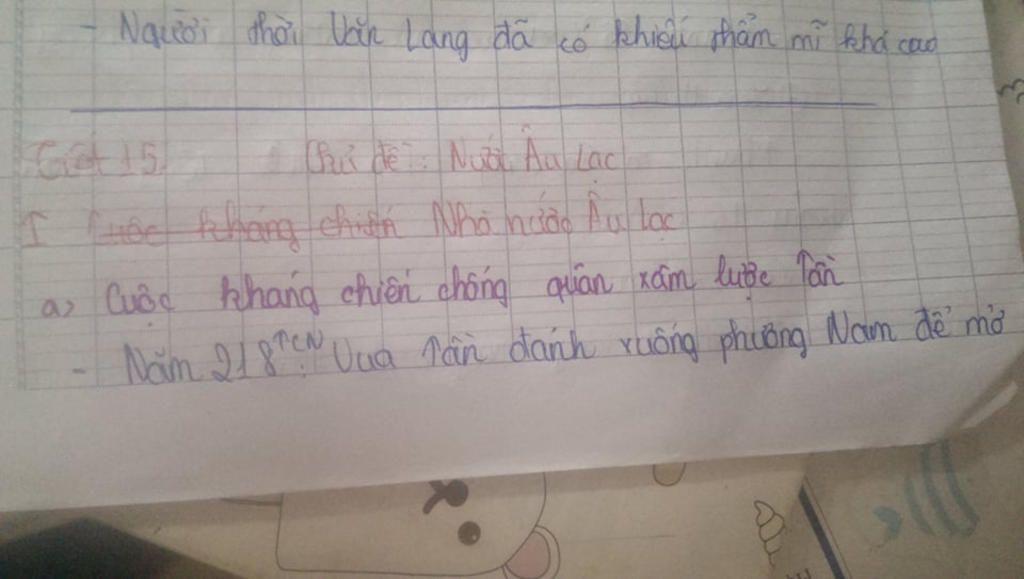 - Người thời Văn Lang đã có khiếu thẩm mĩ khá cao
Tiết 15. Chủ đề: Nước Âu Lạc
I Cuộc kháng chiến Nhà nước Âu Lạc
a) Cuộc kháng chiến chống quân xâm lược Tần
- Năm 218 TCN: Vua Tần đánh xuống phương Nam để mở